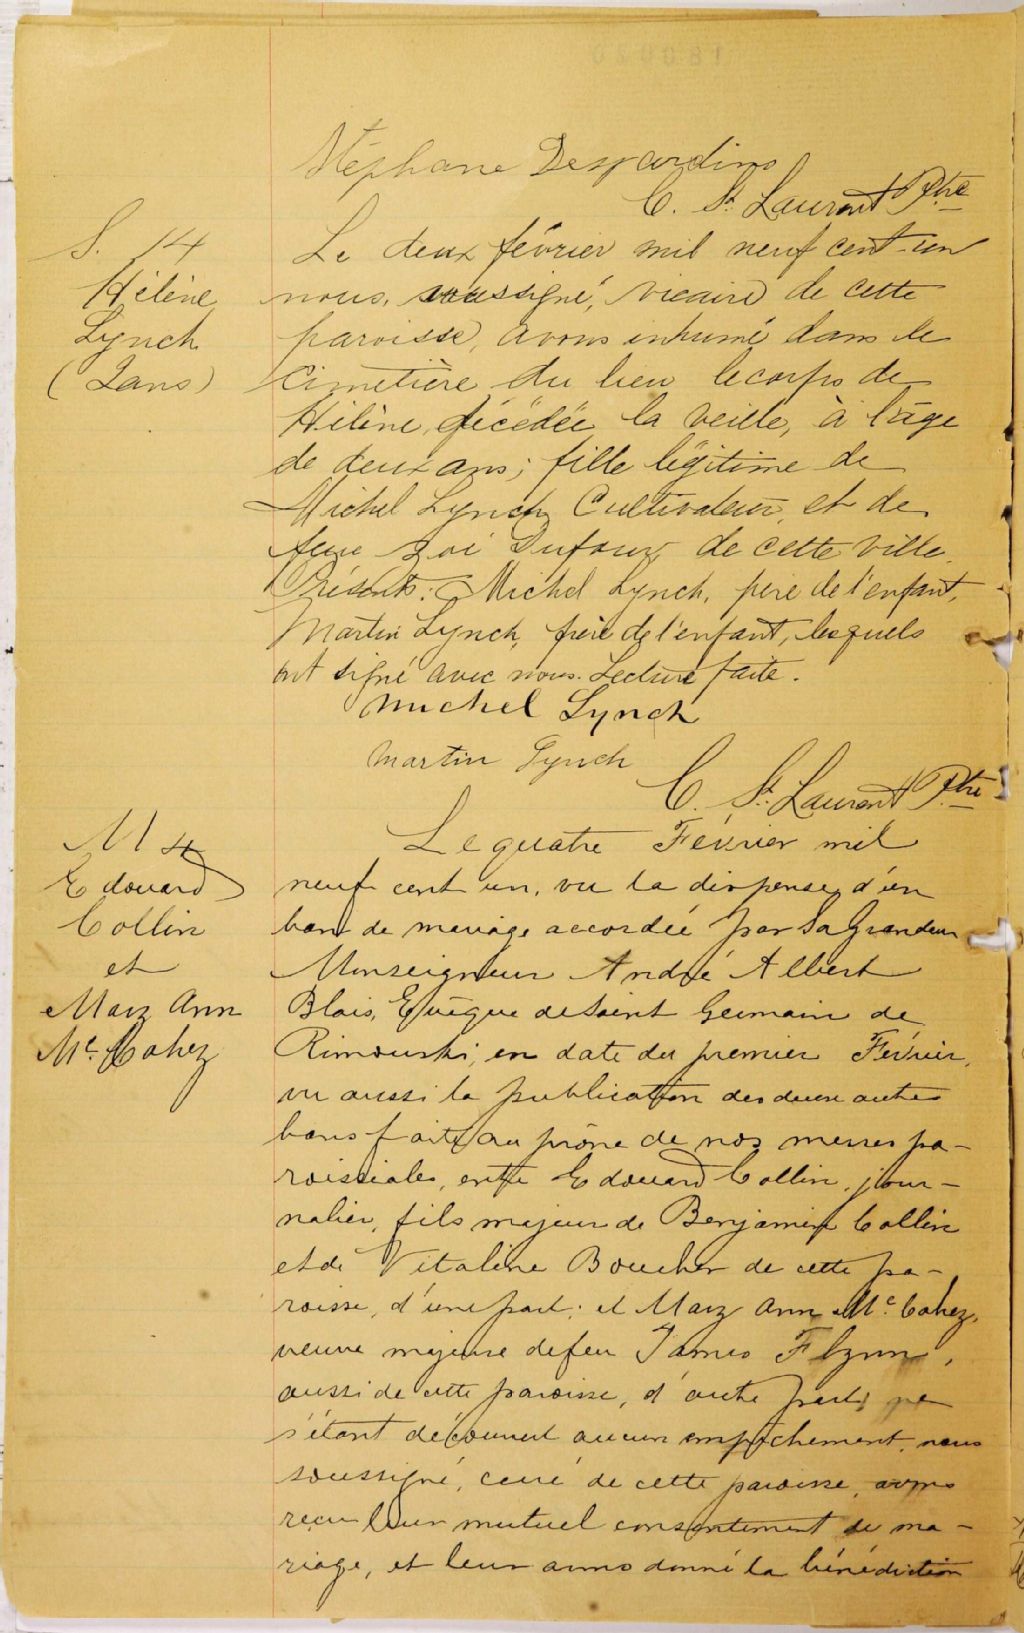 Stéphane Desjardins
C. St Laurent Ptre
S. 14
Hélène
Lynch
(2 ans)
Le deux février mil neuf cent-un
nous, soussigné, vicaire de cette
paroisse, avons inhumé dans le
Cimetière du lieu le corps de
Hélène, décédée la veille, à l'âge
de deux ans; fille légitime de
Michel Lynch, Cultivateur, et de
feue Zoé Dufour, de cette ville.
Présents: Michel Lynch, père de l'enfant,
Martin Lynch, frère de l'enfant, lesquels
ont signé avec nous. Lecture faite.
Michel Lynch
Martin Lynch
C. St. Laurent Ptre
M 4
Edouard
Collin
et
Mary Ann
Mc. Cahey
Le quatre Février mil
neuf cent un, vu la dispense d'un
ban de mariage accordée par Sa Grandeur
Monseigneur André Albert
Blais, Evêque de Saint Germain de
Rimouski, en date du premier Février,
vu aussi la publication des deux autres
bans faite au prône de nos messes pa-
roissiales, entre Edouard Collin, jour-
nalier, fils majeur de Benjamin Collin
et de Vitaline Boucher de cette pa-
roisse, d'une part; et Mary Ann Mc. Cahey,
veuve majeure de feu James Flynn,
aussi de cette paroisse, d'autre part, ne
s'étant découvert aucun empêchement, nous
soussigné, curé de cette paroisse, avons
reçu leur mutuel consentement de ma-
riage, et leur avons donné la bénédiction